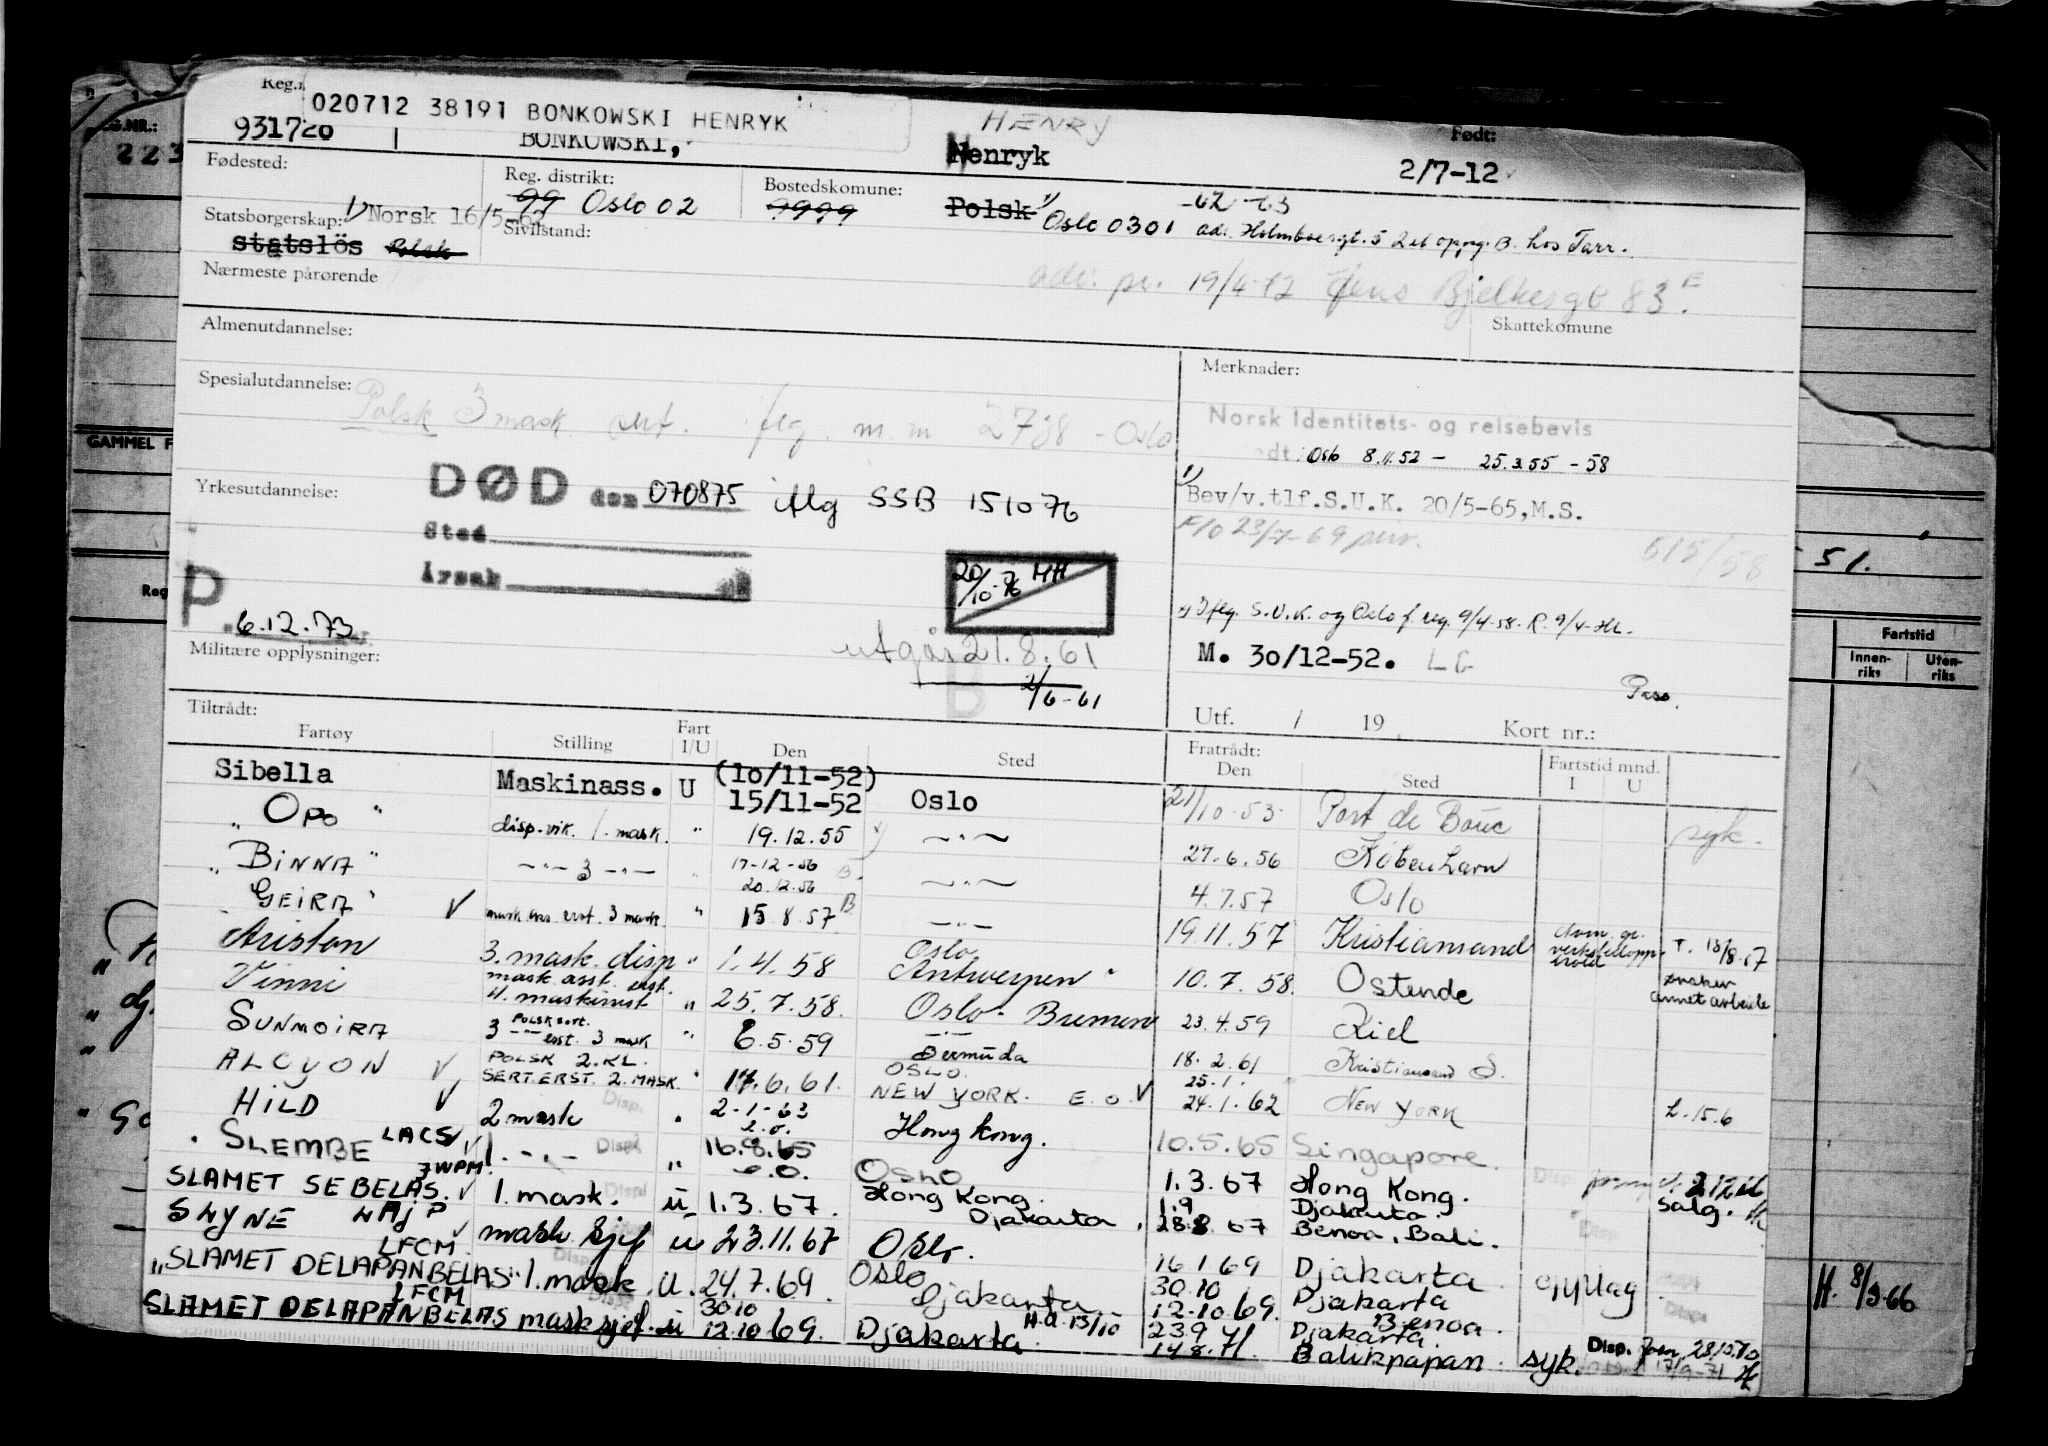 Reg.n
020712 38191 BONKOWSKI HENRYK
HENRY
Født:
931720
BONKOWSKI,
Henryk
2/7-12
G.NR.:
223
Fødested:
Reg. distrikt:
99 Oslo 02
Bostedskomune:
9999
Polsk 1)
Oslo 0301
-62 -63
adr. Holmboesgt. 5 2 et oppg. B. hos Tarr.
Statsborgerskap:
1) Norsk 16/5-62
statslös Polsk
Sivilstand:
Nærmeste pårørende
adr. pr. 19/4-72 Jens Bjelkesgt 83 E.
Skattekomune
Almenutdannelse:
Merknader:
Spesialutdannelse:
Polsk 3 mask sert. iflg. m.m 2738 - Oslo
Norsk Identitets- og reisebevis
Oslo 8.11.52 - 25.3.55 - 58
GAMMEL F
Yrkesutdannelse:
DØD den 070875 iflg SSB 151076
Sted
Årsak
1) Bev/v.tlf.S.U.K. 20/5-65, M.S.
F/O 23/7-69
615/58
51.
20/10-76 HH
Reg
P
6.12.73
Iflg. S.U.K. og Oslo f. reg. 9/4-58. R. 9/4-HL.
utgår 21.8.61
M. 30/12-52. LG
Militære opplysninger:
B 2/6-61
Pass.
Fartstid
Innen-
riks
Uten-
riks
Utf. / 19
Kort nr.:
Tiltrådt:
Fartøy Stilling Fart I/U Den Sted Fratrådt: Den Sted Fartstid mnd. I U
Sibella Maskinass. U (10/11-52) 15/11-52 Oslo 21/10-53 Port de Bouc syk.
"Opo" disp-vik. 1. mask. " 19.12.55 -"- 27.6.56 København
"BINNA" -"- 3 -"- " 17-12-56 20.12.56 -"- 4.7.57 Oslo
"GEIRA" mask.ass. erst. 3 mask " 15.8.57 B -"- 19.11.57 Kristiansand T. 13/8.57
Ariston 3. mask. disp " 1.4.58 Oslo Antwerpen 10.7.58. Ostende ønsker annet arbeide
Vinni mask asst. erst. 4. maskinist " 25.7.58. Oslo - Bremen 23.4.59 Kiel
SUNMOIRA 3 Polsk sert. erst. 3 mask " 6.5.59 -"- Bermuda 18.2.61 Kristiansand S.
ALCYON POLSK 2.KL. SERT. ERST. 2. MASK. " 17.6.61. OSLO. NEW YORK. E.O. 25.1. 24.1.62 NEW YORK L.15.6
HILD 2 mask Disp. " 2-1-63 Hong kong. 10.5.65 Singapore.
SLEMBE LACS 1. -"- Disp " 16.8.65 e.o. OSLO 1.3.67 Hong Kong. salg.
SLAMET SEBELAS. 7WPM 1. mask. u 1.3.67. Hong Kong. Djakarta 1.9 28.8 67 Djakarta. Benoa, Bali.
SLYNE LAJP mask sjef u 23.11.67 Oslo. 16.1.69 Djakarta
"SLAMET DELAPANBELAS" LFCM 1. mask. u. 24.7.69 Oslo Djakarta 30.10 12.10.69. Djakarta Benoa.
SLAMET DELAPANBELAS LFCM mask sjef. u 30.10 12.10.69. Djakarta H.Q. 13/10 23.9.71 14.8.71. Djakarta Balikpapan. syk. Disp. 28.10.70 17/9-71
H. 8/3.66